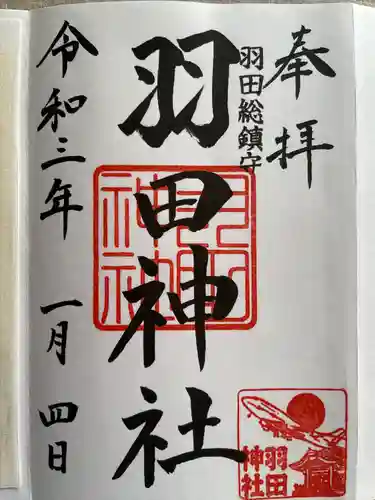 奉拝
羽田総鎮守
羽田神社
令和三年 一月 四日
羽田神社
羽田
神社